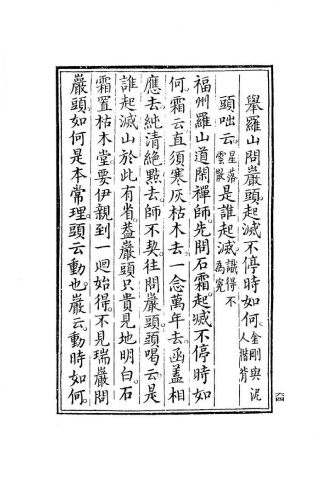 舉羅山問巖頭起滅不停時如何。金剛與泥人揩背
頭咄云。星落雲散是誰起滅識得不爲冤
福州羅山道閑禪師先問石霜。起滅不停時如
何。霜云直須寒灰枯木去。一念萬年去。函蓋相
應去。純清絕點去。師不契。往問巖頭。頭喝云。是
誰起滅。山於此有省。蓋巖頭只貴見地明白。石
霜置枯木堂。要伊親到一迴始得。不見瑞巖問
巖頭。如何是本常理。頭云動也。巖云。動時如何。
六四